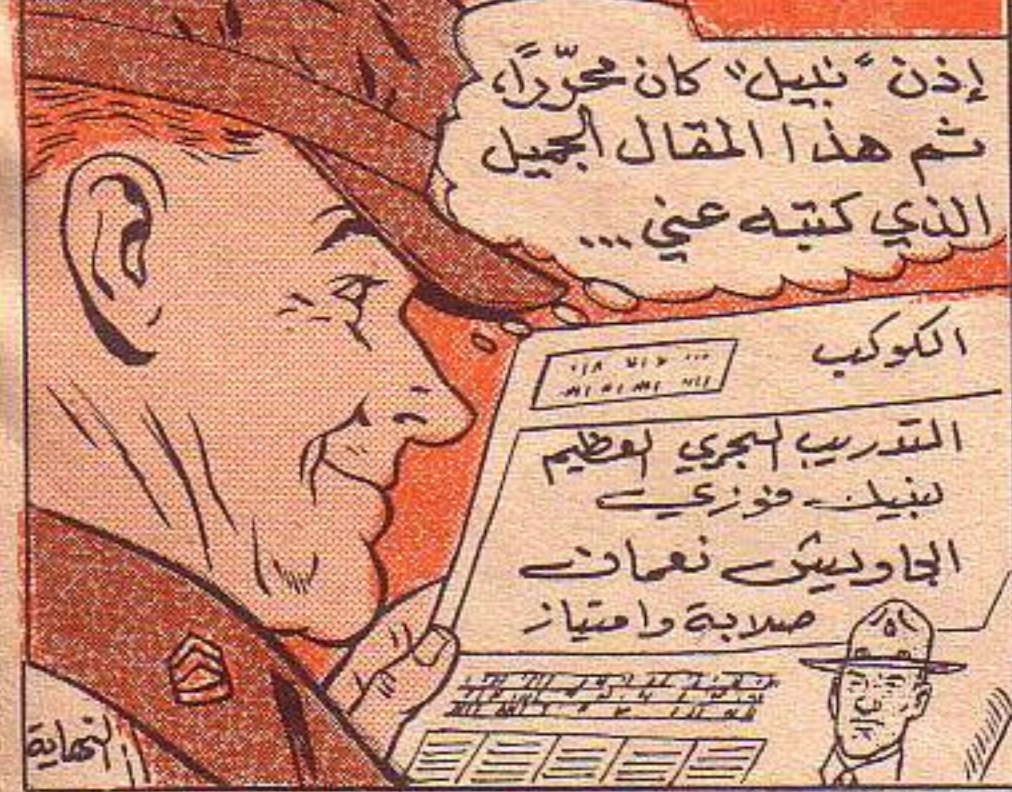 إذن "نبيل" كان محرّرًا،
ثم هذا المقال الجميل
الذي كتبه عني...
الكوكب
التدريب البحري العظيم
لنبيل فوزي
الجاويش نعمان
صلابة وامتياز
النهاية